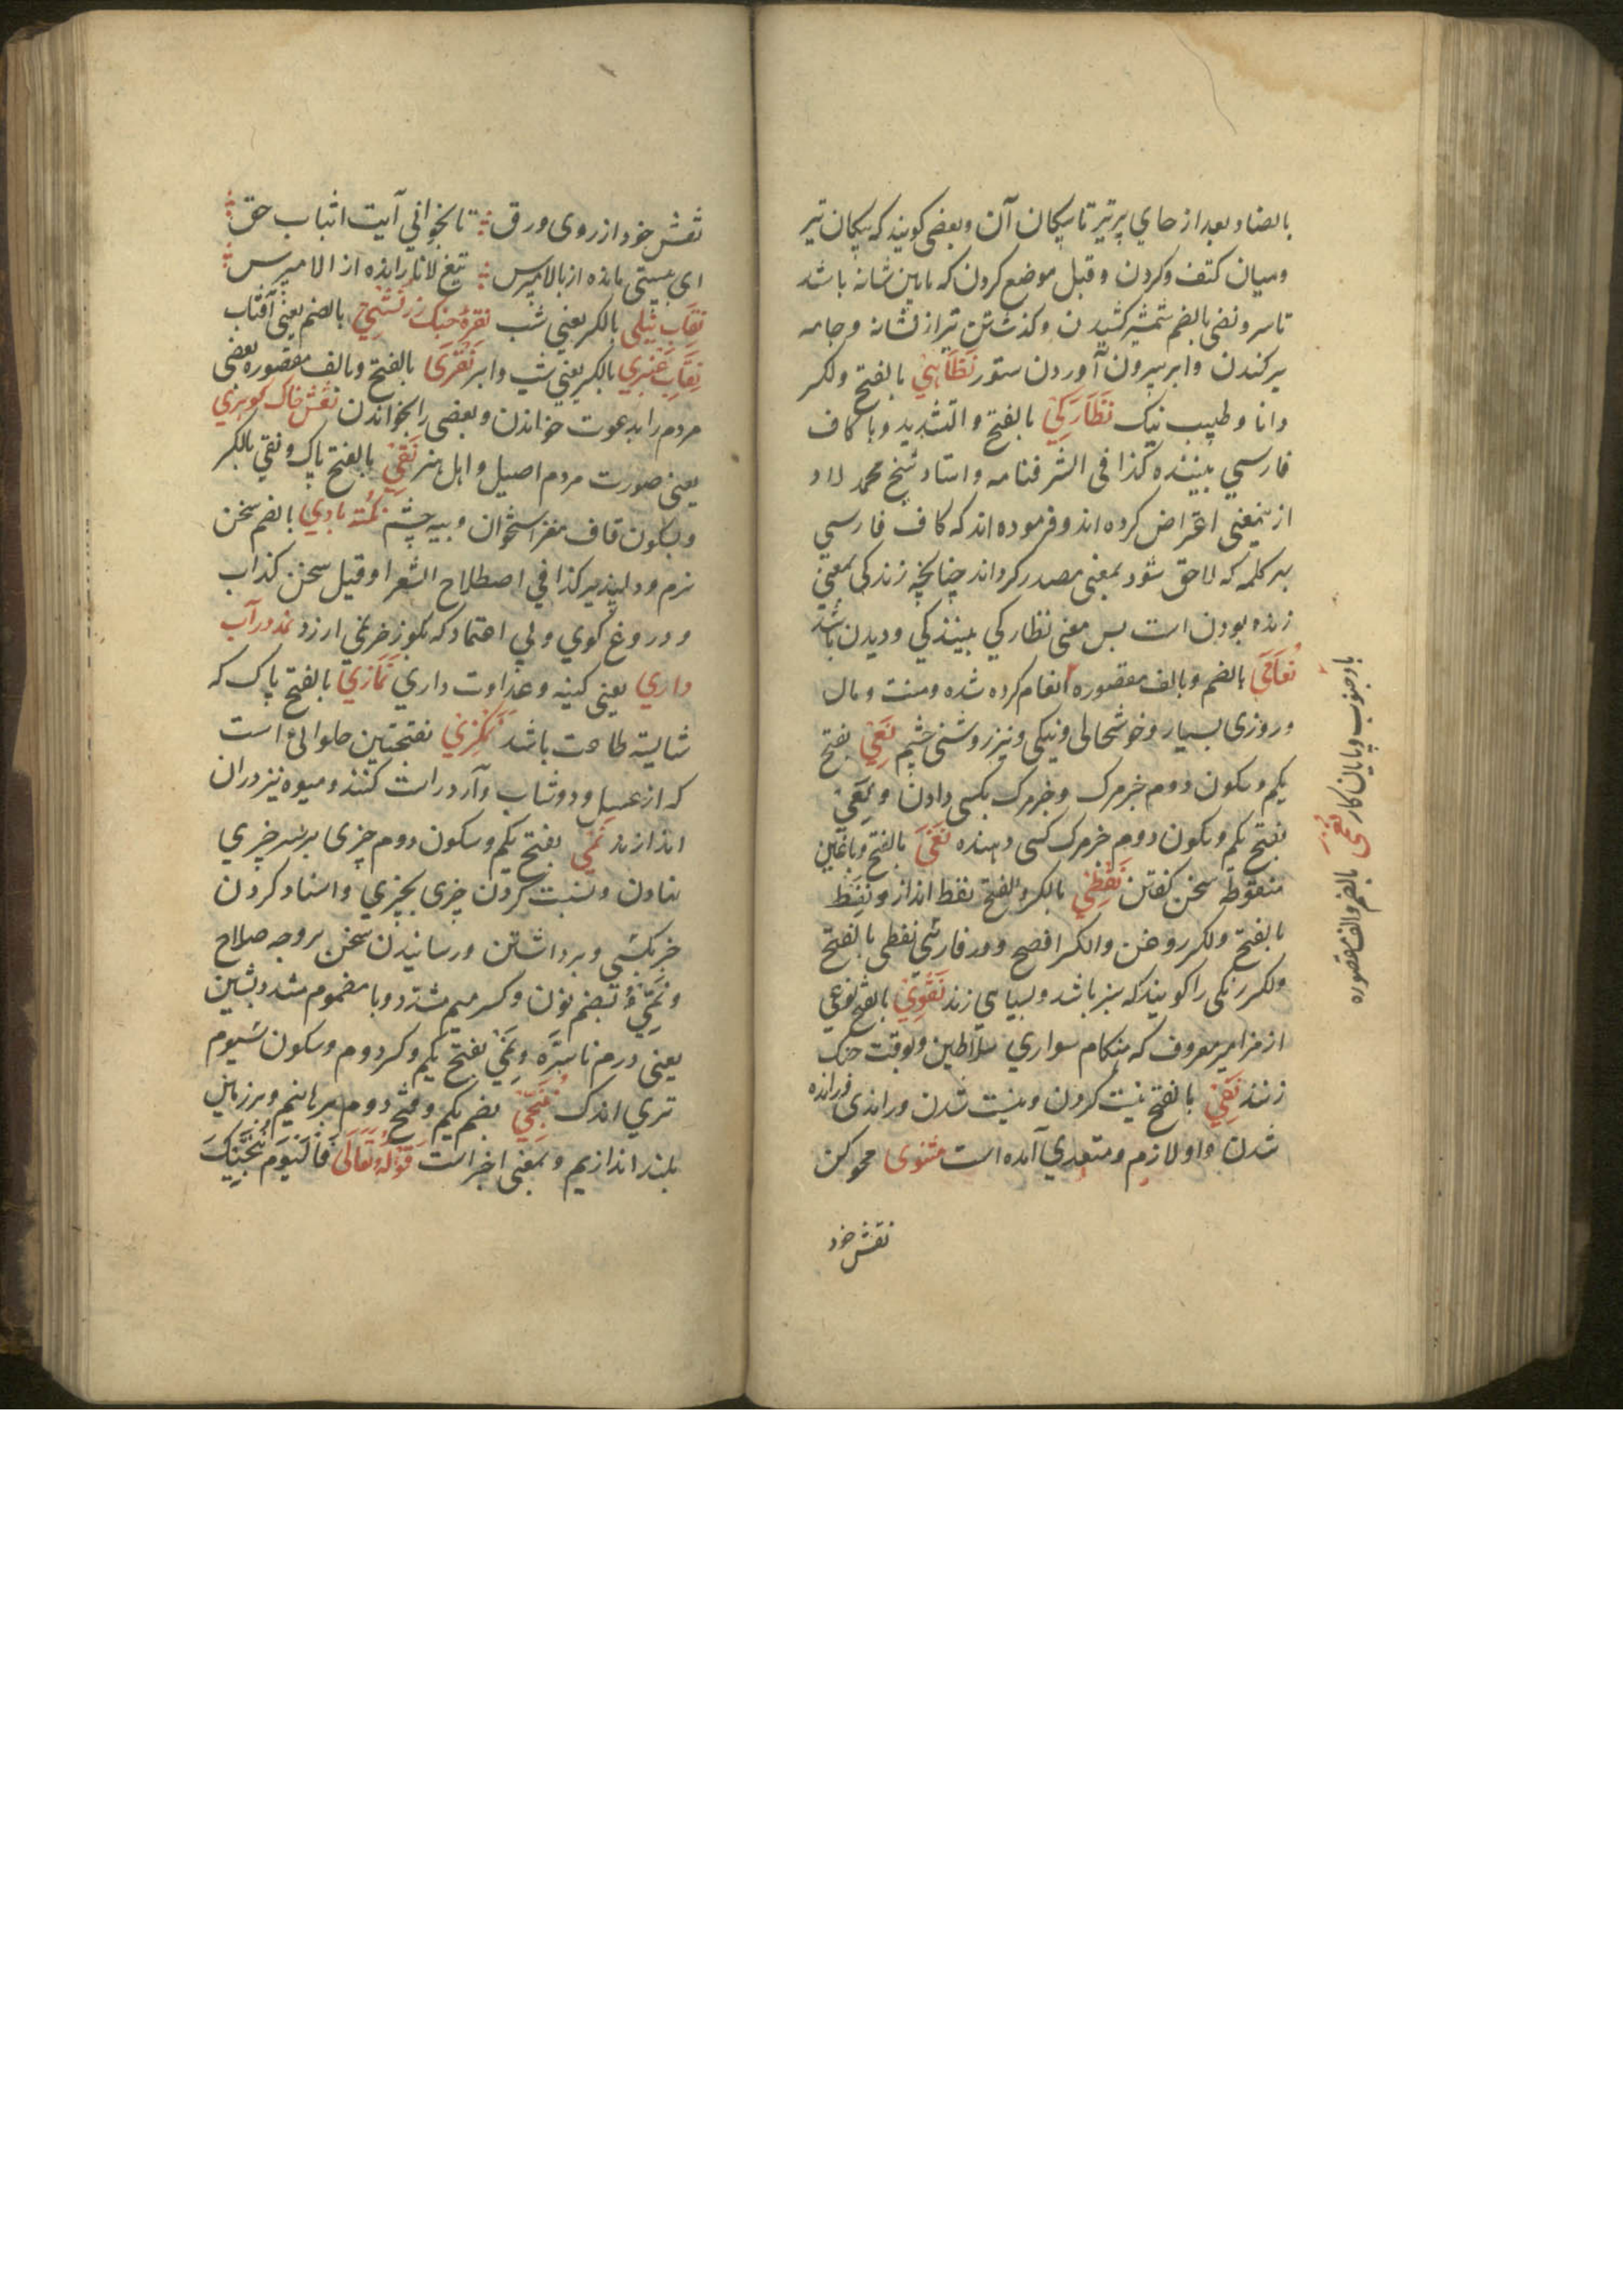 بالضاد بعد از جاي پر تير تا پيكان آن و بعضى كويند كه پيكان تير
و ميان كتف و كردن و قيل موضع كردن كه مابين شانه باشد
تا سر و نضى بالضم شمشير كشيدن و كذشتن تير از نشانه و جامه
بركندن و ابر بيرون آوردن ستور نطاسي بالفتح ولكسر
دانا و طبيب نيك نظاركي بالفتح و التشديد و با كاف
فارسي بيننده كذا فى الشرفنامه و استاد شيخ محمد لاد
ازينمعنى اعتراض كرده اند و فرموده اند كه كاف فارسي
بهر كلمه كه لاحق شود بمعنى مصدر كرداند چنانچه زندكى بمعنى
زنده بودن است پس معنى نظاركي بينندكي و ديدن باشد
نعمى بالضم و بالف مقصوره انعام كرده شده و منت و مال
و روزى بسيار و خوشحالى و نيكى و نيز روشنى چشم نعي بفتح
يكم و سكون دوم خبر مرك و خبر مرك بكسى دادن و نعي
بفتح يكم و سكون دوم خبر مرك كسى دهنده نغى بالفتح و باغين
منقوطه سخن كفتن نفطي بالكسر و الفتح نفط انداز و نفط
بالفتح ولكسر روغن والكسر افصح و در فارسي نفطى بالفتح
ولكسر رنكى را كويند كه سبز باشد و بسياهي زند نقوي بالفتح نوعي
از مزامير معروف كه هنكام سواري سلاطين و بوقت جنك
زنند نفي بالفتح نيست كردن و نيست شدن و راندى و رانده
شدن و او لازم و متعدي آمده است مثنوى محو كن
نقش خود
باد جنوب و پايان كار نعمى بالضم والف مقصوره
نقش خود از روى ورق تا بخوانى آيت اثبات حق
اى بپستى مانده از بالا مپرس تيغ لا نا رانده از الا مپرس
نقاب نيلى بالكسر يعنى شب نقره خنك زر نشيمي بالضم يعنى آفتاب
نقاب عنبري بالكسر يعنى شب و ابر نقرى بالفتح و بالف مقصوره بعضى
مردم را بدعوت خواندن و بعضى را نخواندن نقش خاك كوهري
يعنى صورت مردم اصيل و اهل هنر نقي بالفتح پاك و نقي بالكسر
و سكون قاف مغز استخوان و پيه چشم نكته بادي بالضم سخن
نرم و دلپذير كذا في اصطلاح الشعرا و قيل سخن كذاب
و دروغ كوي و بي اعتماد كه بكوز خرى نمي ارزد نم در آب
داري يعنى كينه و عداوت داري نمازي بالفتح پاك كه
شايسته طاعت باشد نمكزي بفتحتين حلوائي است
كه از عسل و دوشاب و آرد راست كنند و ميوه نيز دران
اندازند نمي بفتح يكم و سكون دوم چيزى بر سر چيزي
نهادن و نسبت كردن چيزى بچيزي و اسناد كردن
خبر بكسي و برداشتن و رسانيدن سخن بر وجه صلاح
و نمي بضم نون و كسر ميم مشدد و يا مضموم مشدد پشين
يعنى درم ناسره و نمي بفتح يكم و كسر دوم و سكون سيوم
تري اندك ننجي بضم يكم و فتح دوم برهانيم و بر زمين
بلند اندازيم و بمعنى اخير است قوله تعالى فاليوم ننجيك